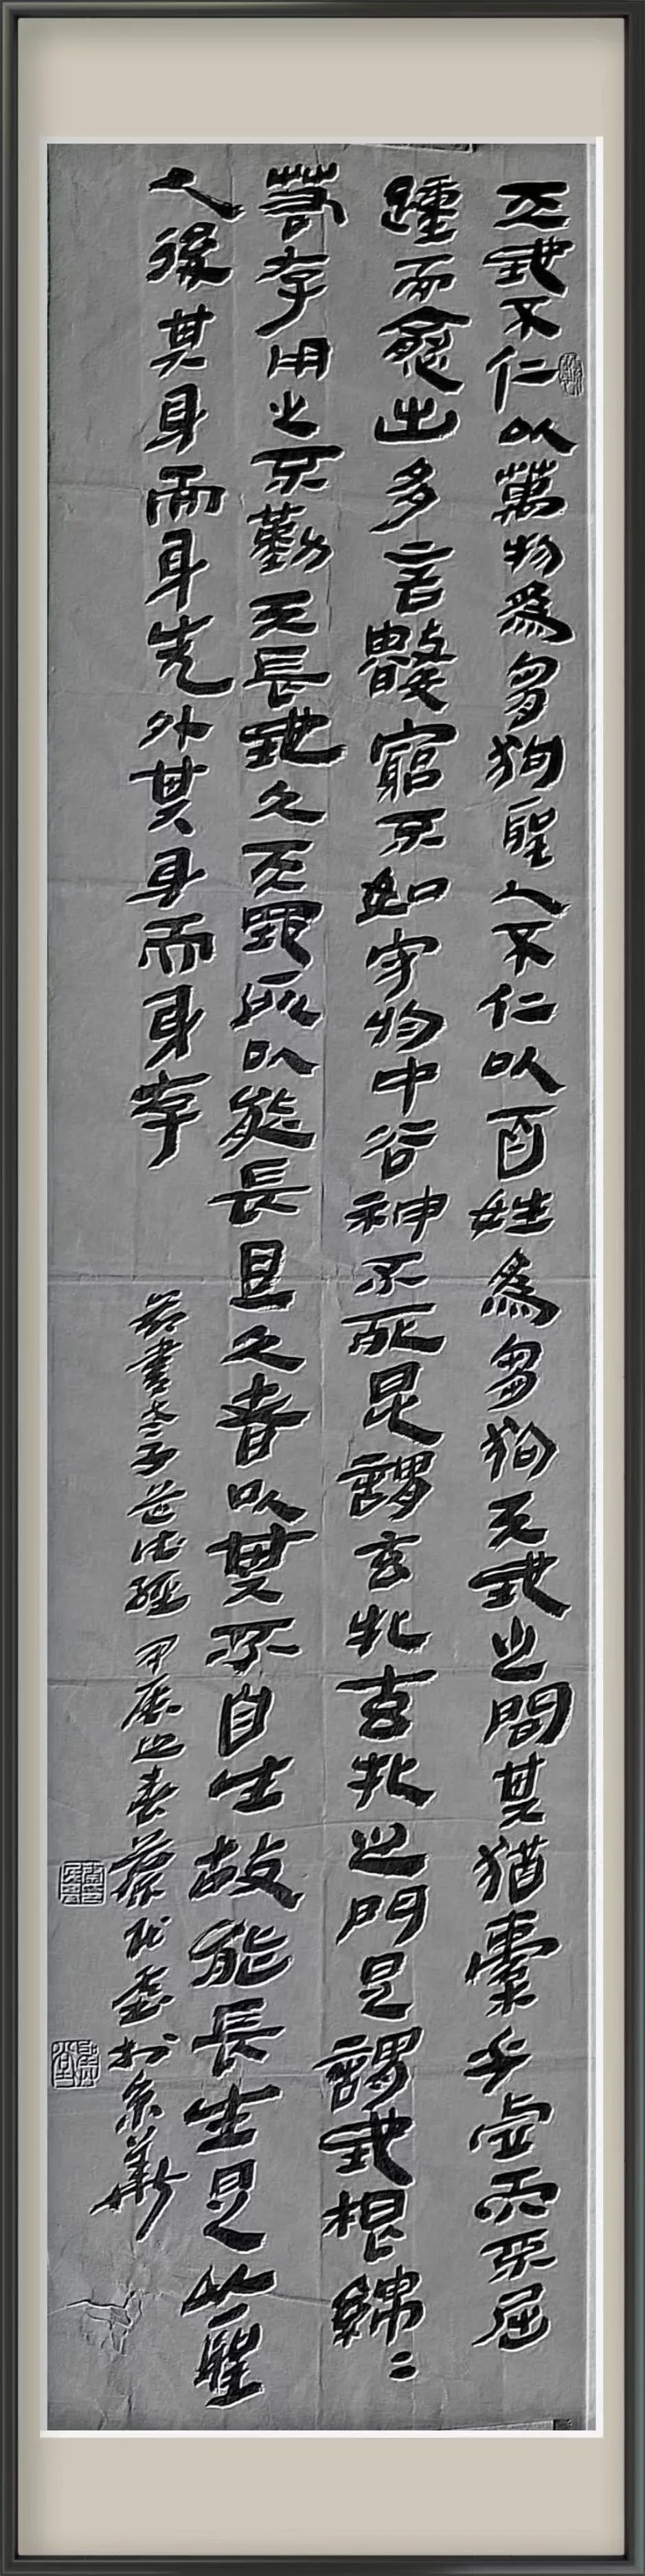 天地不仁以萬物為芻狗聖人不仁以百姓為芻狗天地之間其猶橐乎虛而不屈
踵而愈出多言數窮不如守物中谷神不死是謂玄牝玄牝之門是謂地根緜二
若存用之不勤天長地久天地所以能長且久者以其不自生故能長生是以聖
人後其身而身先外其身而身存
節書老子道德經甲辰之春蔡於京華